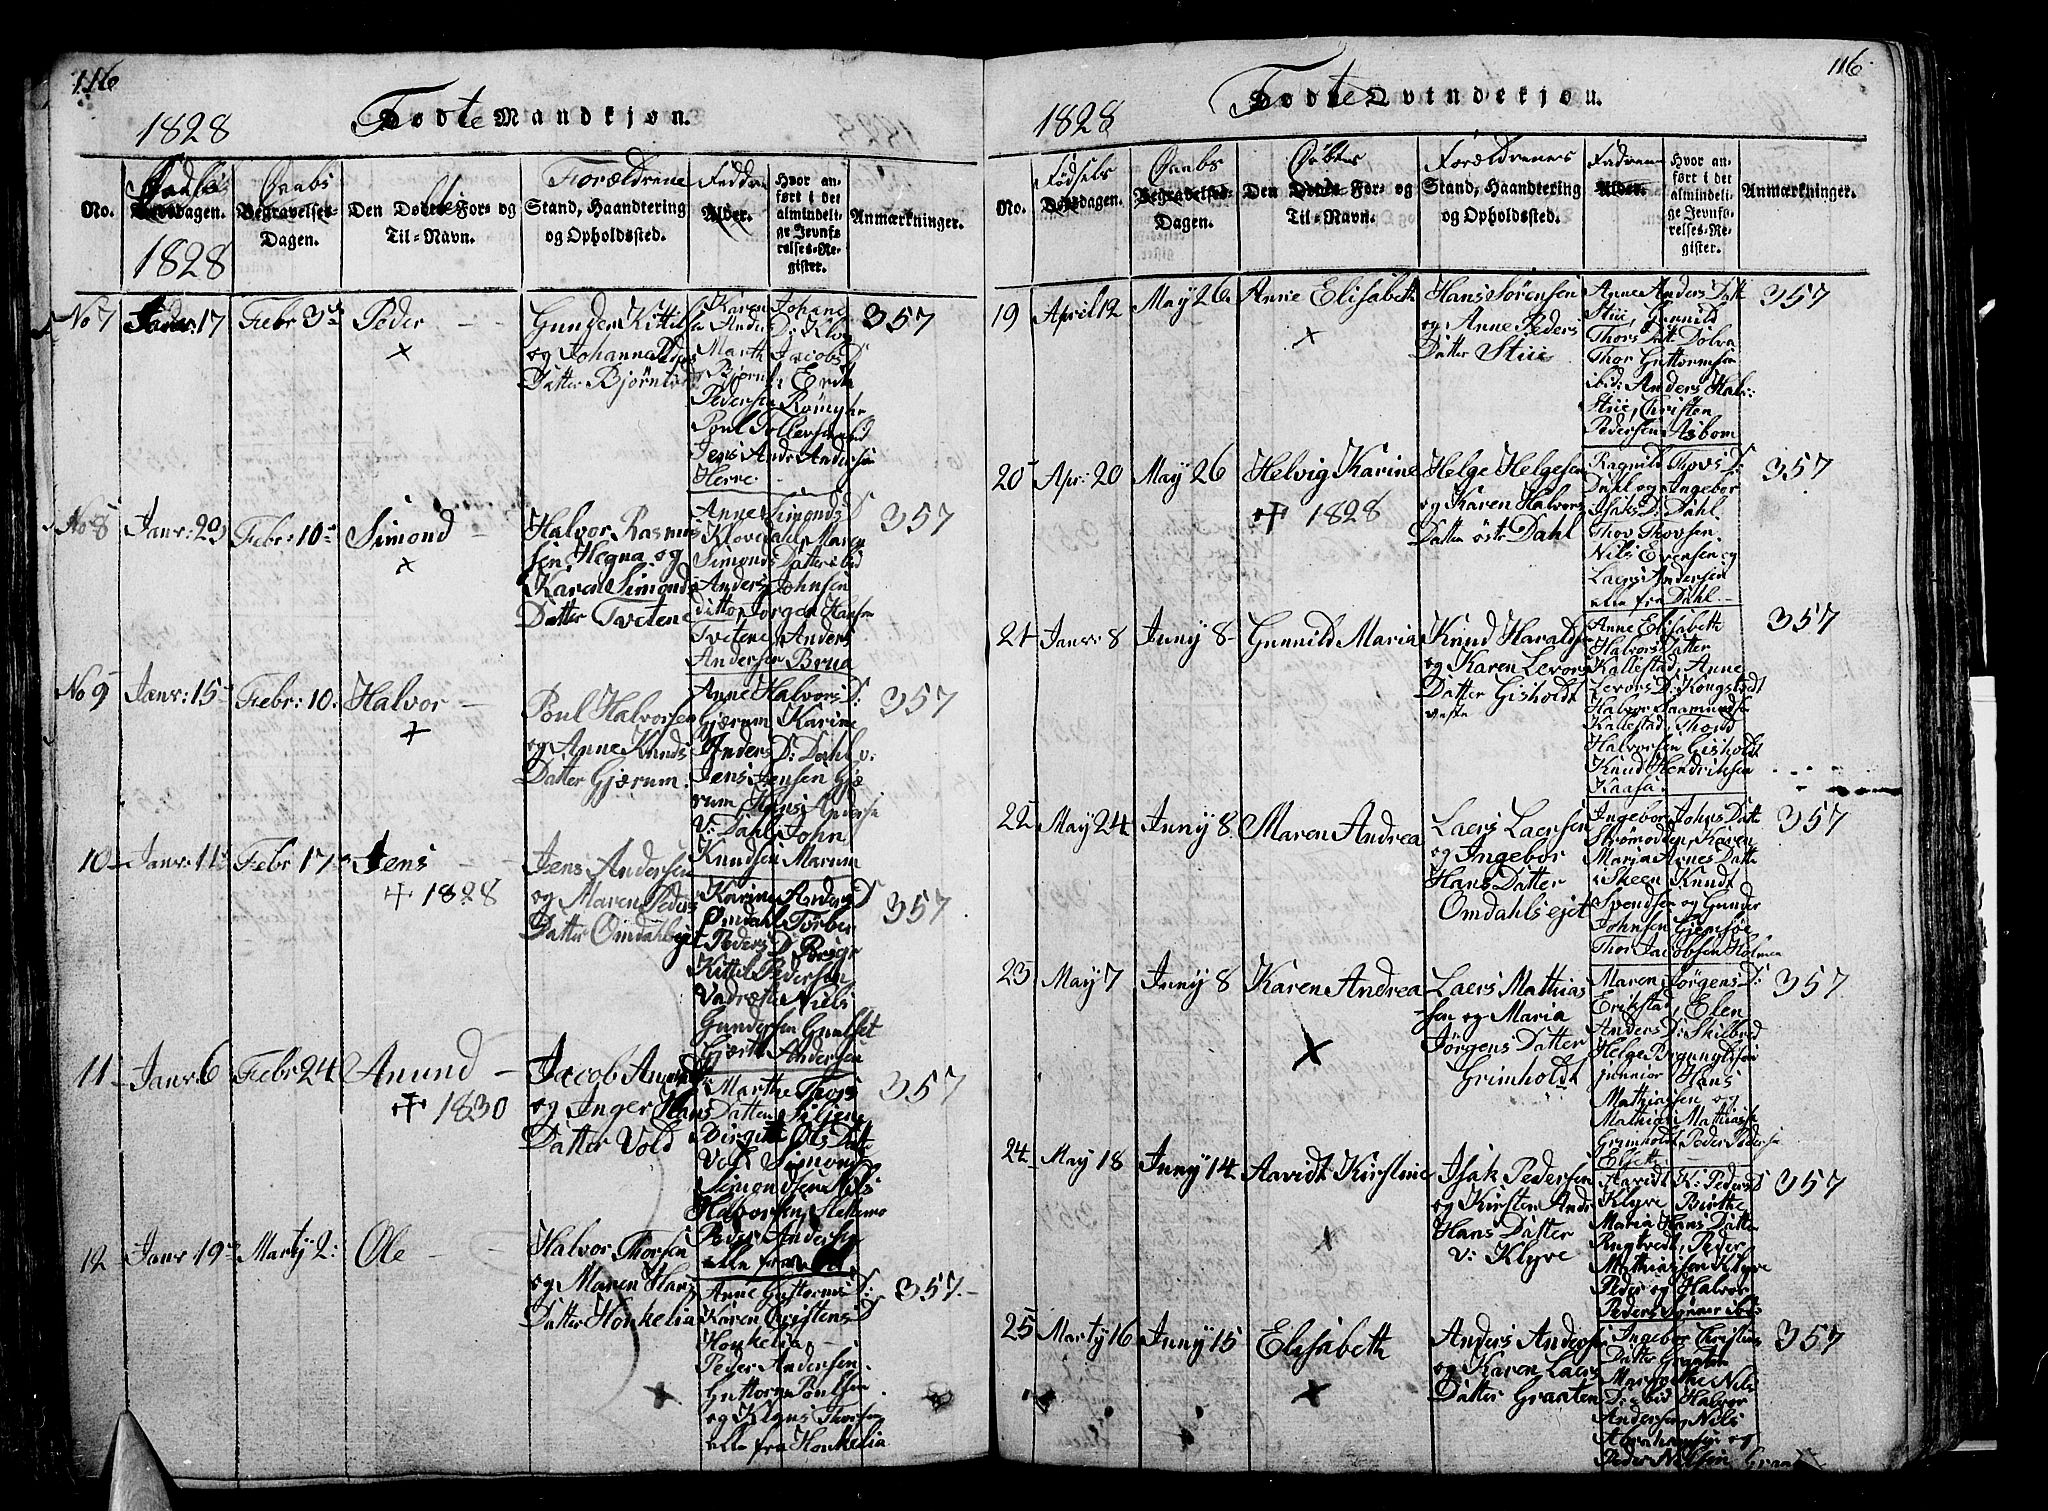 116
1828
Födte Mandkjøn.
No.
Fødsels Dagen.
1828
Daabs Begravelses-
Dagen.
Den Døbte For- og
Til-Navn.
Forældrene
Stand, Haandtering
og Opholdssted.
Faddere
Alder.
Hvor an-
ført i det
almindeli-
ge Jevnfø-
relses-Re-
gister.
Anmærkninger.
No 7
Janr: 17
Febr 3
Peder
Gunder Kittils
og Johanne
Datter Bjørntvedt
Karen Johane
Anders D: Klov
Marth Jacobs D
Bjørnt: Erik
Pedersen
Poul Tollevsen ibid
Jens Andr Andersen
Herre
357
No 8
Janr: 29
Febr: 10
Simond
Halvor Rasmus
sen Hegna og
Karen Simonds
Datter Tvetene
Anne Simonds D
Klovdahl, Maren
Simonds Datter ibid
Anders Johnsen
ditto, Jørgen Hansen
Tvetene Anders
Andersen Brua
357
No 9
Janr: 15
Febr: 10:
Halvor
Poul Halvorsen
og Anne Knuds
Datter Gjærum.
Anne Halvors D:
Gjærum Karine
Anders D: Dahl v:
Jens Jensen Gjæ
rum, Hans Anderse
V: Dahl John
Knudsen Marum
357
10
Janr: 11
Febr 17
Jens
1828
Jens Andersen
og Maren Peders
Datter Omdahlsejet
Karine Anders D
Omdahl Torber
Peders D: Borge
Kittil Pedersen
Vadrette Niels
Gundersen Gunlset
Gjerth Andersen
357
11
Janr 6
Febr 24
Anund
1830
Jacob Anunds
og Inger Hans
Datter Vold
Marthe Thors
Datter Siljene
Birgitte Ols Datt
Vold Simond
Simondsen Nils
Halvorsen Slettemo
Peder Anders
alle fra
357
12
Janr: 19
Marty 2:
Ole
Halvor Thorsen
og Maren Hans
Datter Honkelia
Anne Guttorms D:
Karen Christens D
Honkelia,
Peder Andersen
Guttorm Poulsen
og Klaus Thorsen
alle fra Honkelia
357.
116
1828
Födte Qvindekjøn.
No.
Fødsels
Dødsdagen.
Daabs
Begravelses-
Dagen.
Døbtes
Den Dødes For- og
Til-Navn.
Forældrenes
Stand, Haandtering
og Opholdssted.
Faddere
Alder.
Hvor an-
ført i det
almindeli-
ge Jevnfø-
relses-Re-
gister.
Anmærkninger.
19
April 12
May 26
Anne Elisabeth
Hans Sörensen
og Anne Peders
Datter Stii
Anne Anders Datt
Stii, Gunild
Thors Datt Dolva
Thor Guttormsen
ibid: Anders Hal:
Stii, Christen
Pedersen Asbom
357
20
Apr: 20
May 26
Helvig Karine
1828
Helge Helgesen
og Karen Halvors
Datter östr Dahl
Ragnild Thovs D:
Dahl og Ingebor
Isaks D: Dahl
Thov Thovsen
Nils Evensen og
Laers Andersen
alle fra Dahl
357
21
Janr: 8
Juny 8
Gunnild Maria
Knud Haralds
og Karen Levors
Datter Gisholdt
veste
Anne Elisabeth
Halvors Datter
Kallestad, Anne
Levors D: Kongstedt
Halvor Saamundsen
Kallestad, Thord
Halvorsen Gisholdt
Knud Hendriksen
Kaasa.
357
22
May 24
Juny 8
Maren Andrea
Laers Laersen
og Ingebor
Hans Datter
Omdahlsejet
Ingebor Johns Datt
Strömodden, Karen
Maria Arnes Datte
i Skeen Knudt
Spendsen og Gunder
Johnsen Gjemsöe
Thor Jacobsen Holmen
357
23
May 7
Juny 8
Karen Andrea
Laers Mathias
sen og Maria
Jörgens Datter
Grimholdt
Maren Jörgens D:
Erikstad, Elen
Anders D: Skilbred
Helge Brynnylvsen
junnior Hans
Mathiassen og
Mathias Mathiasse
Grimholdt Peder Peders
357
24
May 18
Juny 14
Aavidt Kirstine
Isak Pedersen
og Kirsten Andr
Hans Datter
V: Klyve
Aavidt K: Peders D
Klyve Birthe
Maria Hans Datter
Rugtvedt, Peder
Mathiassen Klyve
Peder og Halvor
Peders Sönner ibid:
357
25
Marty 16
Juny 15
Elisabeth
Anders Anders
og Karen Laers
Datter Graaten
Ingebor Christens
Datter Graaten
Margrethe Nils
D: ibid Halvor
Andersen, Nils
Abrahamsen og
Peder Nilsen Graat
357